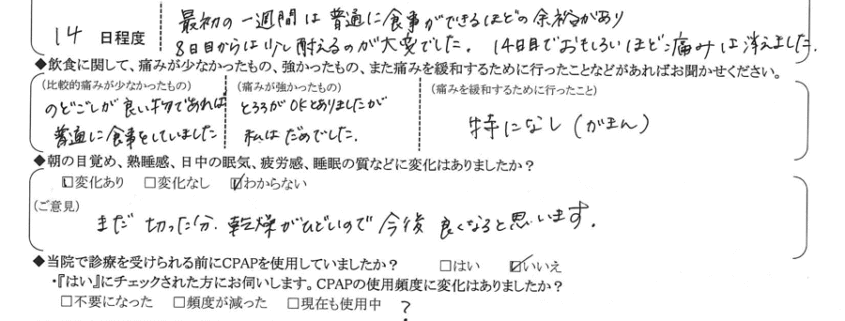 14 日程度
最初の一週間は普通に食事ができるほどの余裕があり
8日目からは少し耐えるのが大変でした。 14日目でおもしろいほど痛みは消えました。
◆飲食に関して、痛みが少なかったもの、強かったもの、また痛みを緩和するために行ったことなどがあればお聞かせください。
(比較的痛みが少なかったもの) (痛みが強かったもの) (痛みを緩和するために行ったこと)
のどごしが良い物であれば とろろがOKとありましたが
特になし (がまん)
普通に食事をしていました 私はだめでした.
◆朝の目覚め、熟睡感、日中の眠気、疲労感、睡眠の質などに変化はありましたか?
□変化あり □変化なし ☑わからない
(ご意見)
まだ 切った分. 乾燥がひどいので 今後 良くなると思います.
◆当院で診療を受けられる前にCPAPを使用していましたか? □はい ☑いいえ
・『はい』にチェックされた方にお伺いします。CPAPの使用頻度に変化はありましたか?
□不要になった □頻度が減った □現在も使用中 ?